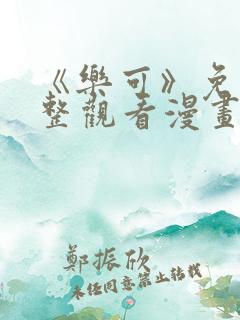 《樂可》免
整觀看漫畫
鄭振欣
未经同意禁止转载